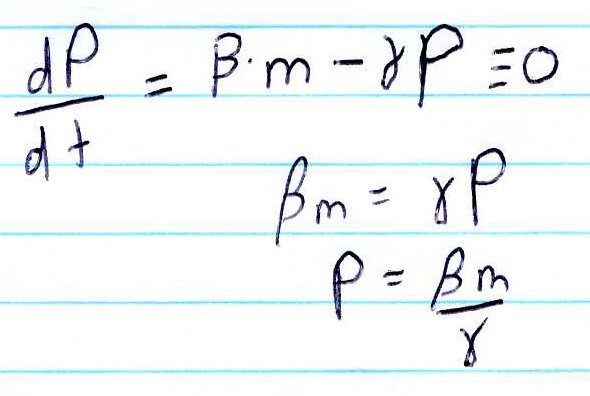 dP/dt = β·m − γP ≡ 0
βm = γP
P = βm/γ